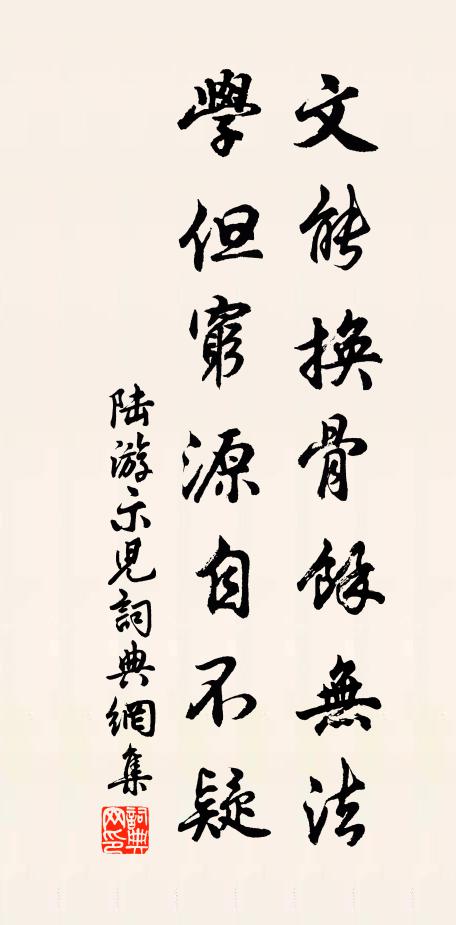 文能換骨餘無法
學但窮源自不疑
陆游示兒詞典網集
詞典網印